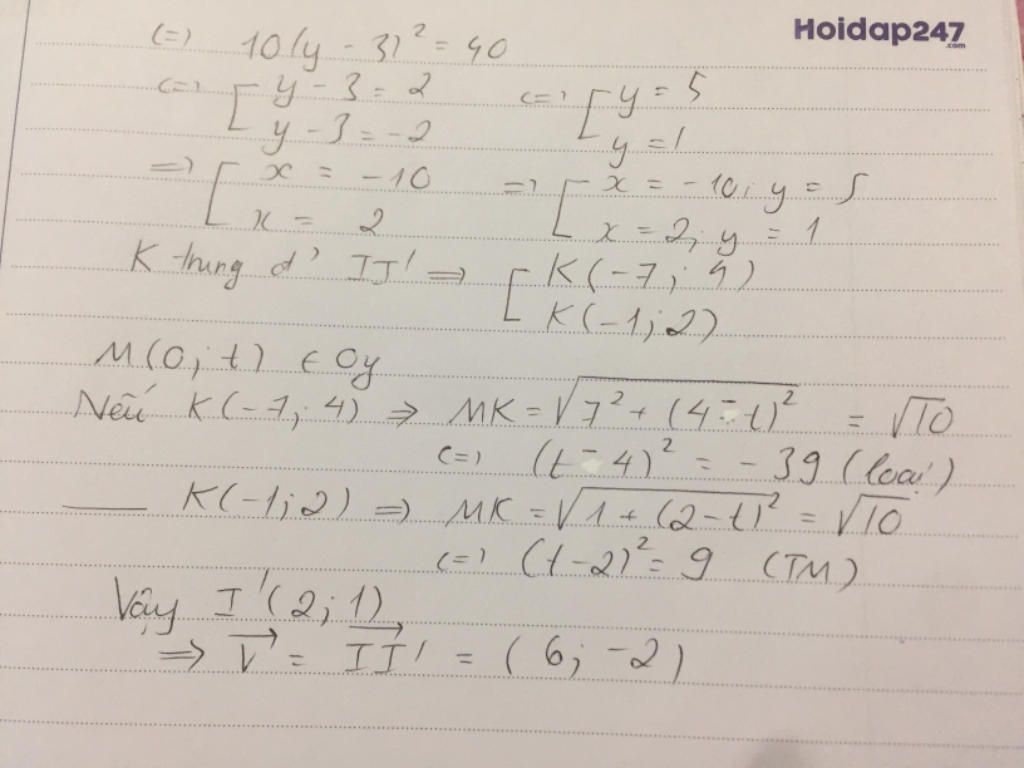 Hoidap247
.com
(=) 10(y - 3)² = 40
(=) [ y - 3 = 2 (=) [ y = 5
y - 3 = -2 y = 1
=> [ x = -10 => [ x = -10; y = 5
x = 2 x = 2; y = 1
K trung đ' II' => [ K(-7; 4)
K(-1; 2)
M(0; t) ∈ Oy
Nếu K(-7; 4) => MK = √7² + (4 - t)² = √10
(=) (t - 4)² = -39 (loại)
—— K(-1; 2) => MK = √1 + (2 - t)² = √10
(=) (t - 2)² = 9 (TM)
Vậy I'(2; 1)
=> V⃗ = II'⃗ = (6; -2)